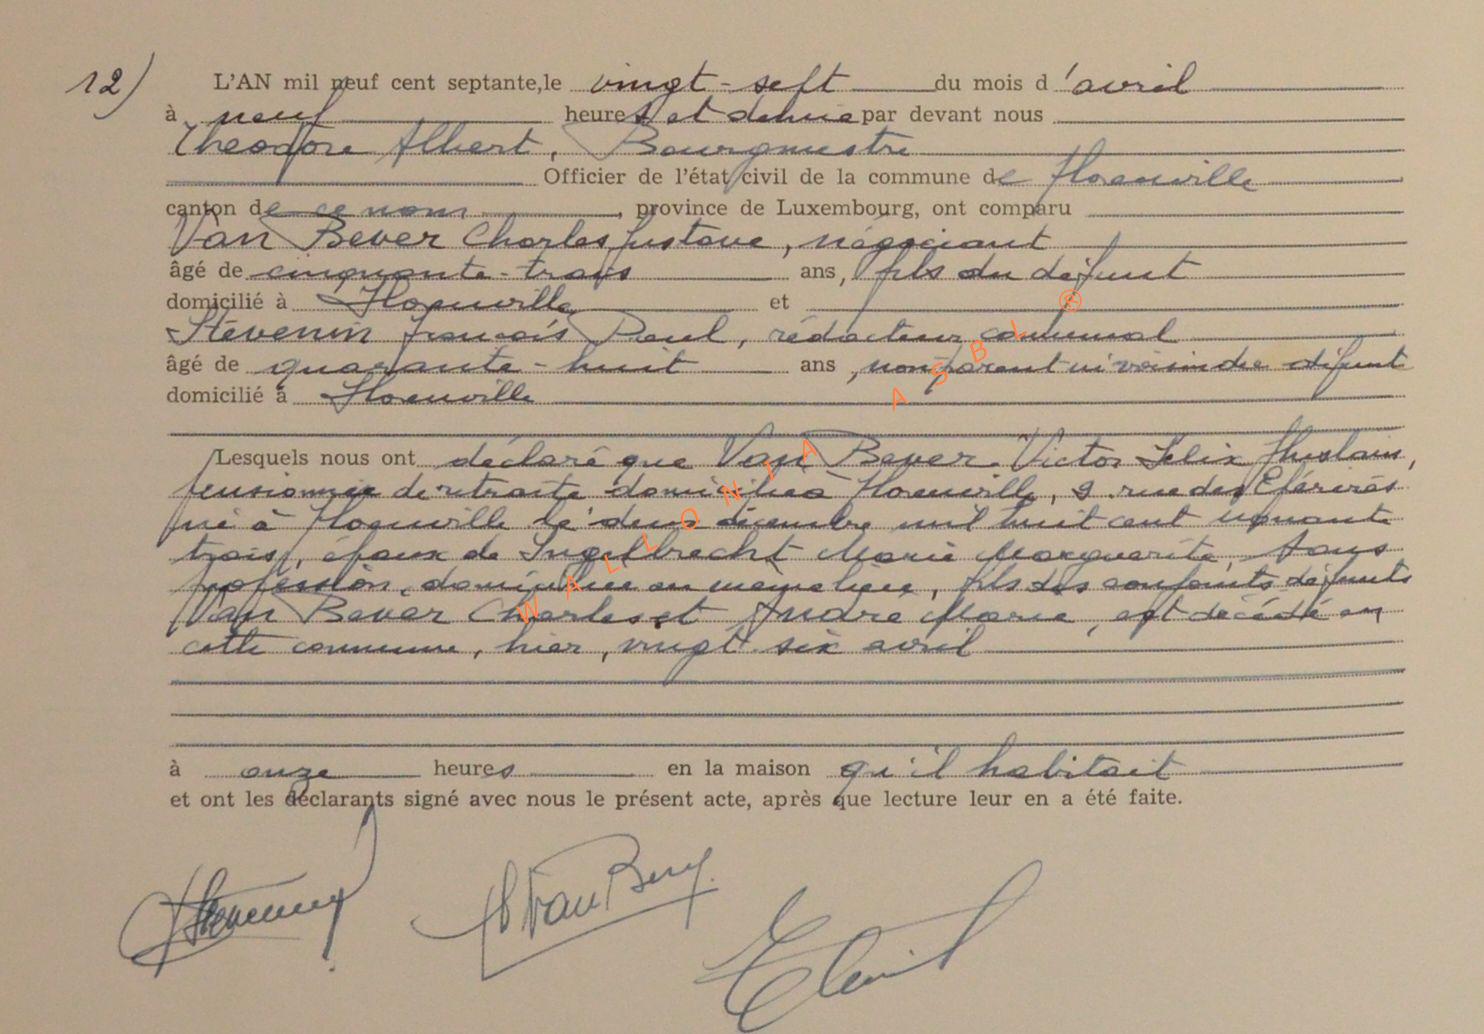 12) L'AN mil neuf cent septante, le vingt-sept du mois d'avril
à neuf heures et demie par devant nous
Théodore Albert, Bourgmestre
Officier de l'état civil de la commune de Florenville
canton de ce nom, province de Luxembourg, ont comparu
Van Bever Charles Gustave, négociant
âgé de cinquante-trois ans, fils du défunt
domicilié à Florenville et
Stévenin François Paul, rédacteur communal
âgé de quarante-huit ans, non parent ni voisin du défunt
domicilié à Florenville
Lesquels nous ont déclaré que Van Bever Victor Félix Ghislain,
pensionné de retraite domicilié à Florenville, 9 rue des
né à Florenville le deux décembre mil huit cent nonante
trois, époux de Ingelbrecht Marie Marguerite, sans
profession, domiciliée au même lieu, fils des conjoints défunts
Van Bever Charles et André Marie, est décédé en
cette commune, hier, vingt-six avril
à onze heures en la maison qu'il habitait
et ont les déclarants signé avec nous le présent acte, après que lecture leur en a été faite.
Van Bever
WALLONIA ASBL ®